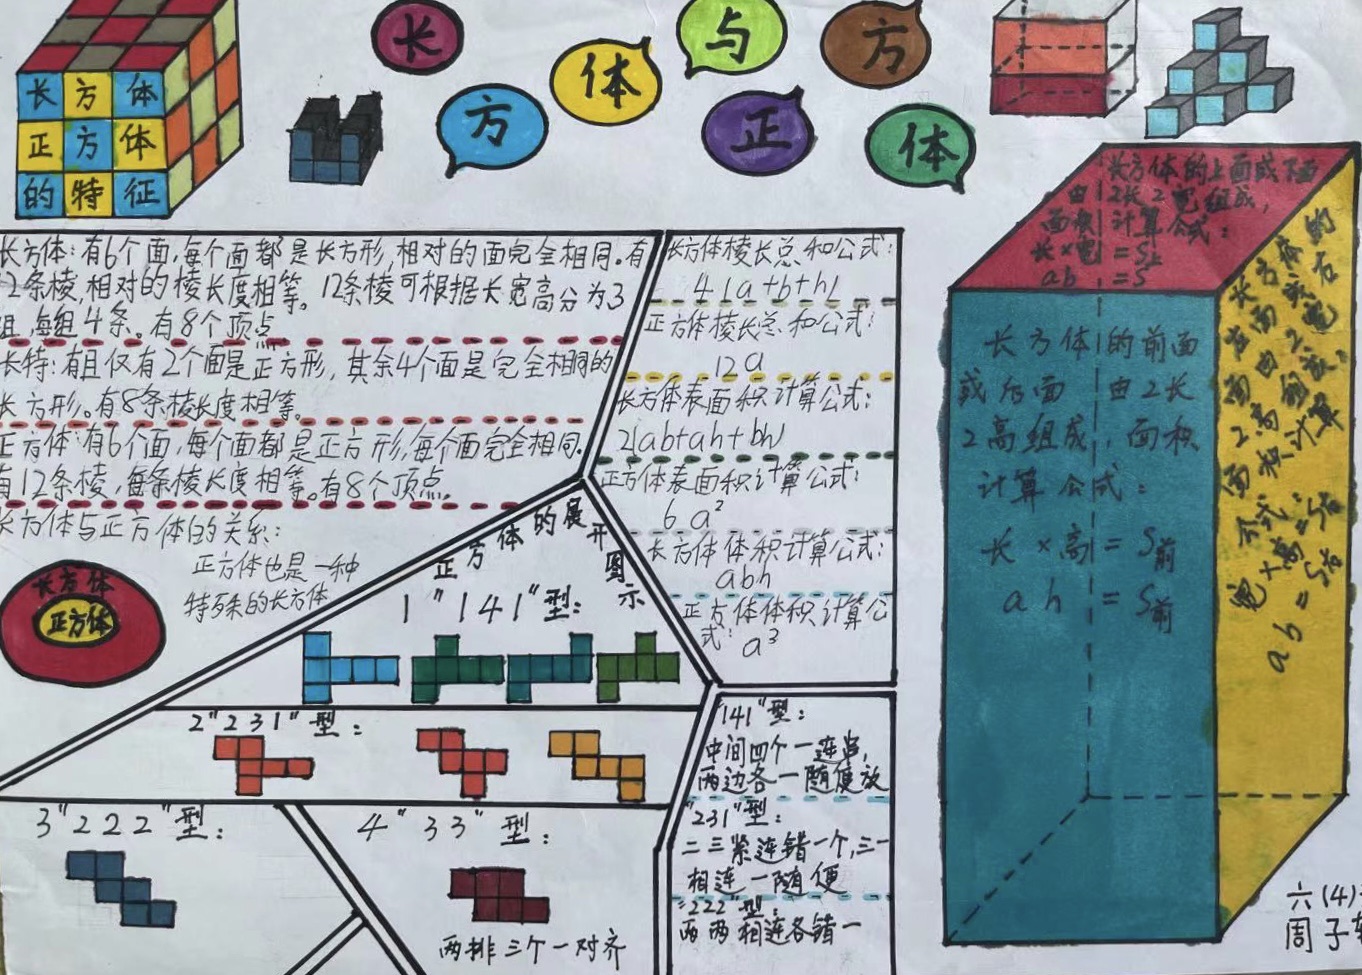 长方体
正方体
的特征
长方体与正方体
长方体:有6个面,每个面都是长方形,相对的面完全相同。有
2条棱,相对的棱长度相等。12条棱可根据长宽高分为3
组,每组4条。有8个顶点
长特:有且仅有2个面是正方形,其余4个面是完全相同的
长方形。有8条棱长度相等。
正方体:有6个面,每个面都是正方形,每个面完全相同.
有12条棱,每条棱长度相等。有8个顶点。
长方体与正方体的关系:
正方体也是一种
特殊的长方体
长方体
正方体
长方体棱长总和公式:
4(a+b+h)
正方体棱长总和公式:
12a
长方体表面积计算公式:
2(ab+ah+bh)
正方体表面积计算公式:
6a²
长方体体积计算公式:
abh
正方体体积计算公
式:a³
正方体的展开图示
1"141"型:
2"231"型:
3"222"型:
4"33"型:
两排三个一对齐
"141"型:
中间四个一连串,
两边各一随便放
"231"型:
二三紧连错一个,三一
相连一随便
"222"型:
两两相连各错一
长方体的上面或下面
由2长2宽组成,
面积计算公式:
长×宽=S上
ab=S
长方体的前面
或后面由2长
2高组成,面积
计算公式:
长×高=S前
ah=S前
长方体的
左面或右
面由2宽
2高组成。
面积计算
公式:
宽×高=S右
ab=S右
六(4)
周子